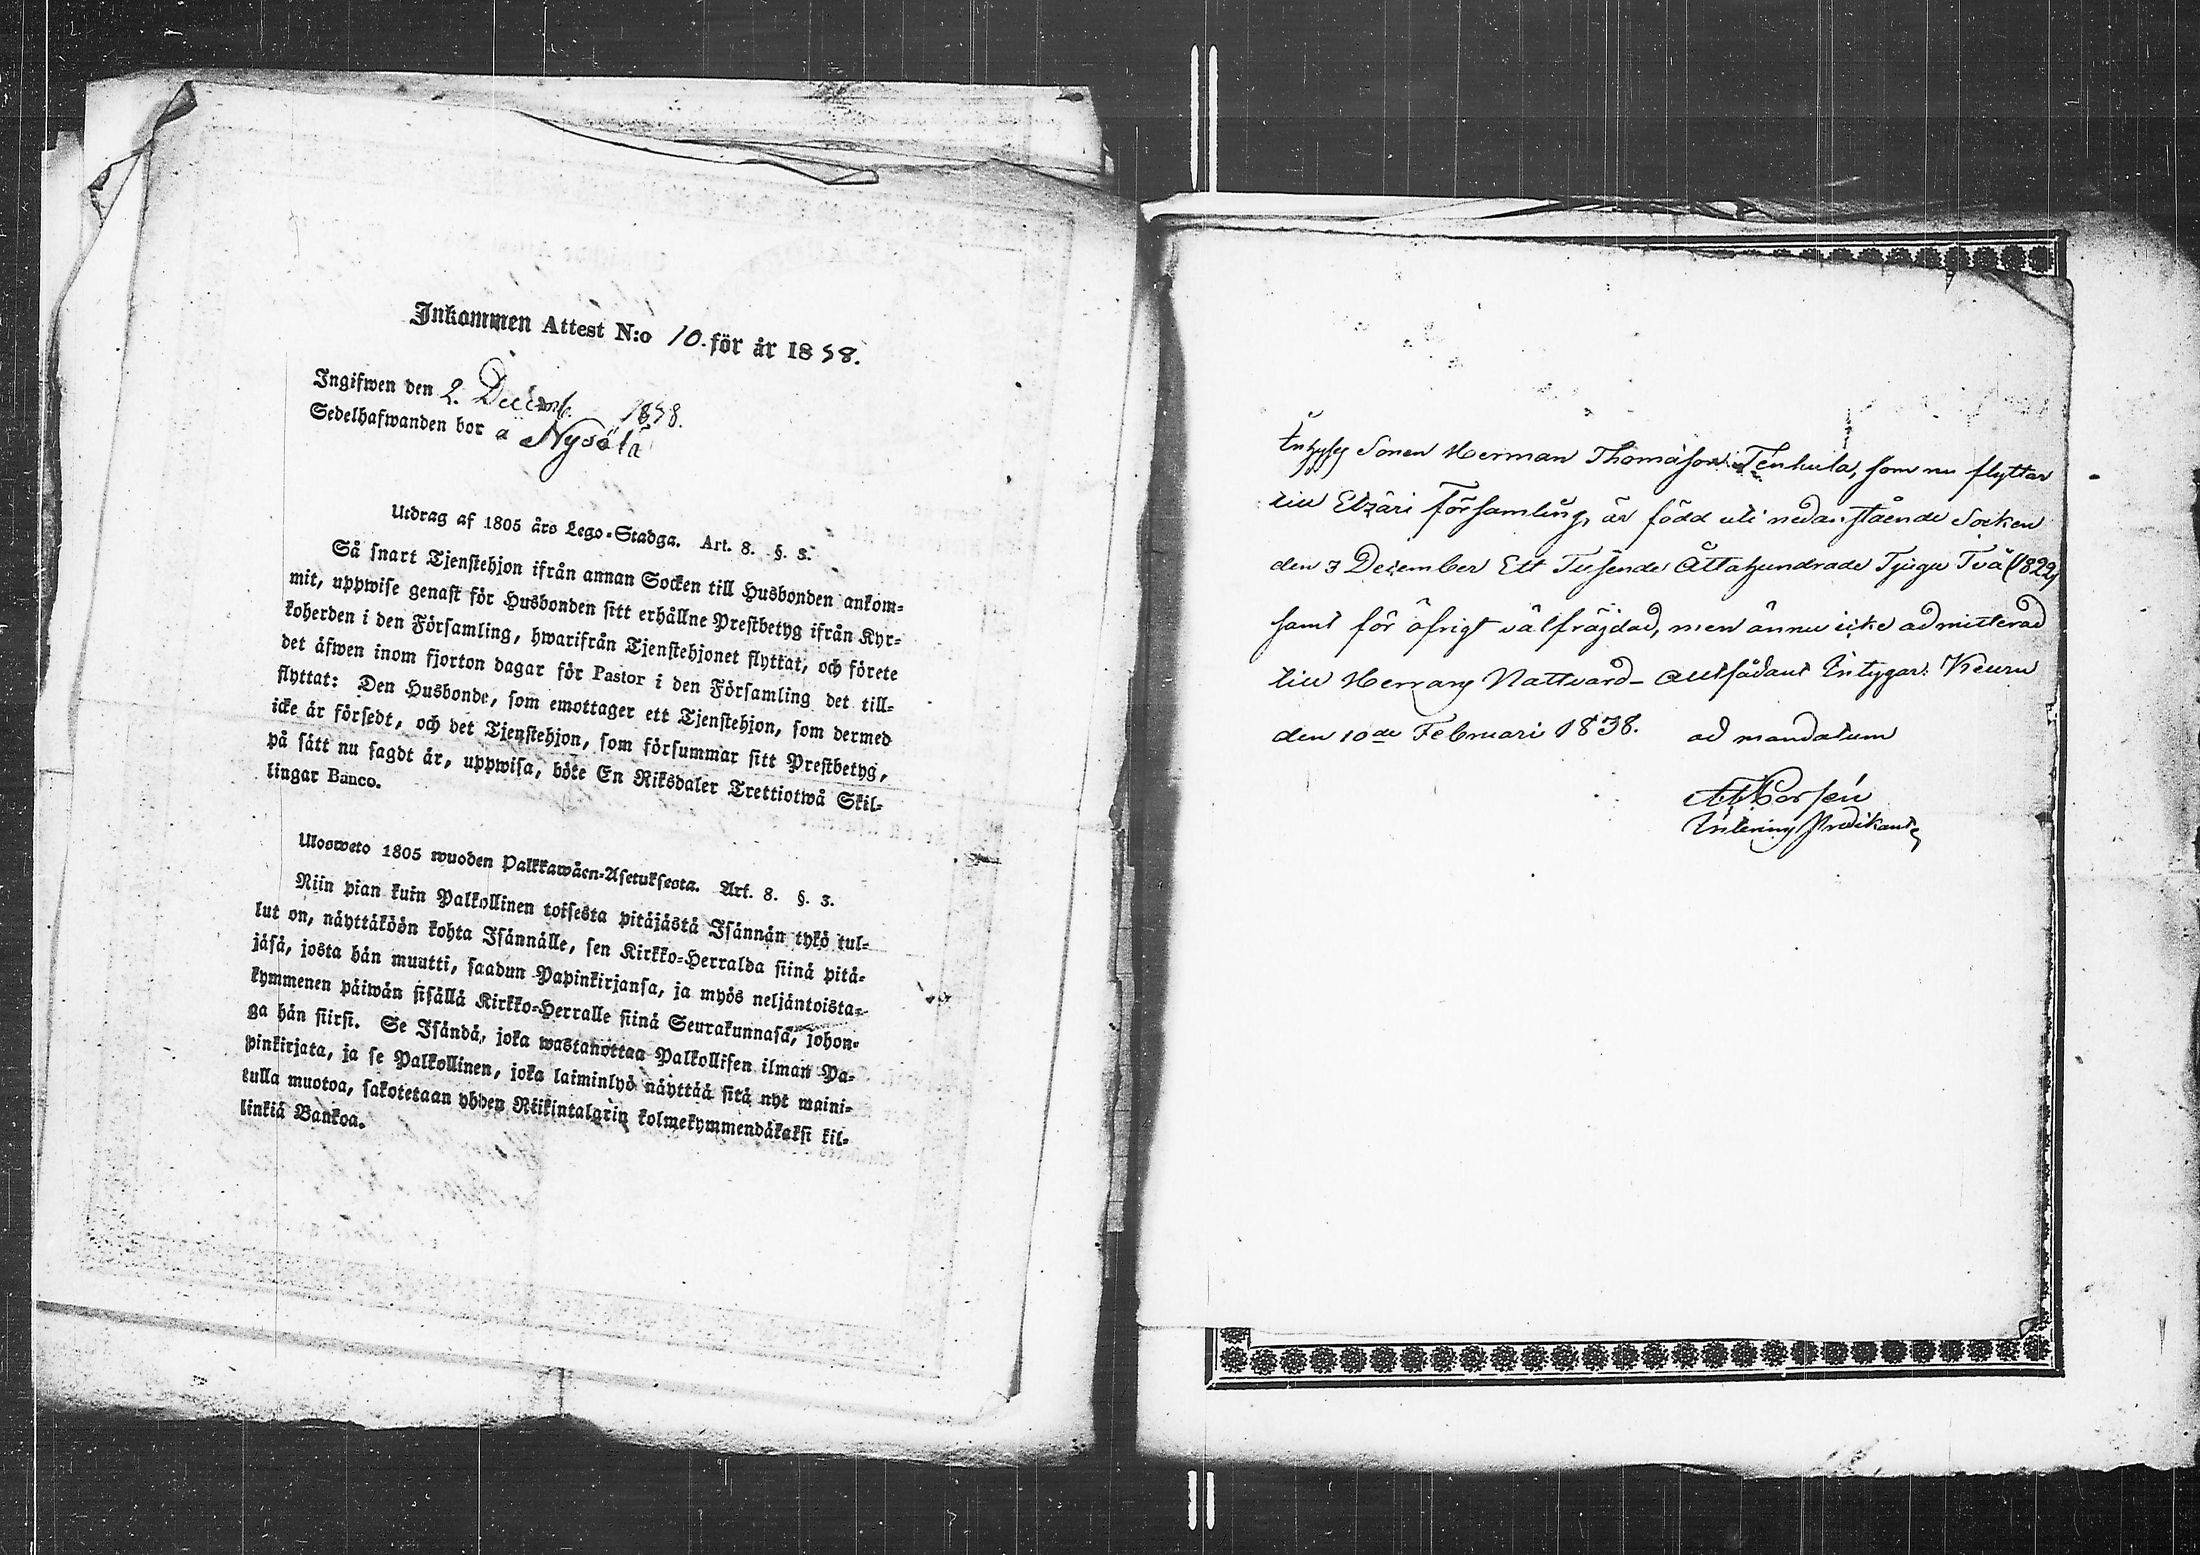 Inkommen Attest N:o 10. för år 1858.
Ingifwen den 2. Decemb. 1858.
Sedelhafwanden bor å Nysölä
Utdrag af 1805 års Lego-Stadga. Art. 8. §. 3.
Så snart Tjenstehjon ifrån annan Socken till Husbonden ankom-
mit, uppwise genast för Husbonden sitt erhållne Prestbetyg ifrån Kyr-
koherden i den Församling, hwarifrån Tjenstehjonet flyttat, och förete
det äfwen inom fjorton dagar för Pastor i den Församling det till-
flyttat: Den Husbonde, som emottager ett Tjenstehjon, som dermed
icke är försedt, och det Tjenstehjon, som försummar sitt Prestbetyg,
på sätt nu sagdt är, uppwisa, böte En Riksdaler Trettiotwå Skil-
lingar Banco.
Ulosweto 1805 wuoden Palkkawäen-Asetuksesta. Art. 8. §. 3.
Niin pian kuin Palkollinen toisesta pitäjästä Isännän tykö tul-
lut on, näyttäköön kohta Isännälle, sen Kirkko-Herralda siinä pitä-
jäsä, josta hän muutti, saadun Papinkirjansa, ja myös neljäntoista-
kymmenen päiwän sisällä Kirkko-Herralle siinä Seurakunnasa, johon-
ga hän siirsi. Se Isändä, joka wastanottaa Palkollisen ilman Pa-
pinkirjata, ja se Palkollinen, joka laiminlyö näyttää sitä nyt maini-
tulla muotoa, sakotetaan yhden Riikintalarin kolmekymmendäkaksi kil-
linkiä Bankoa.
Inhyses Sonen Herman Thomasson Tenhula, som nu flyttar
till Etzäri Församling, är född uti nedanstående Socken
den 7 December Ett Tusende Åttahundrade Tjugu Två (1822)
samt för öfrigt välfräjdad, men ännu icke admitterad
till Herrans Nattvard – Allt sådant Intygar: Keuru
den 10de Februari 1838. ad mandatum
Interims Predikant